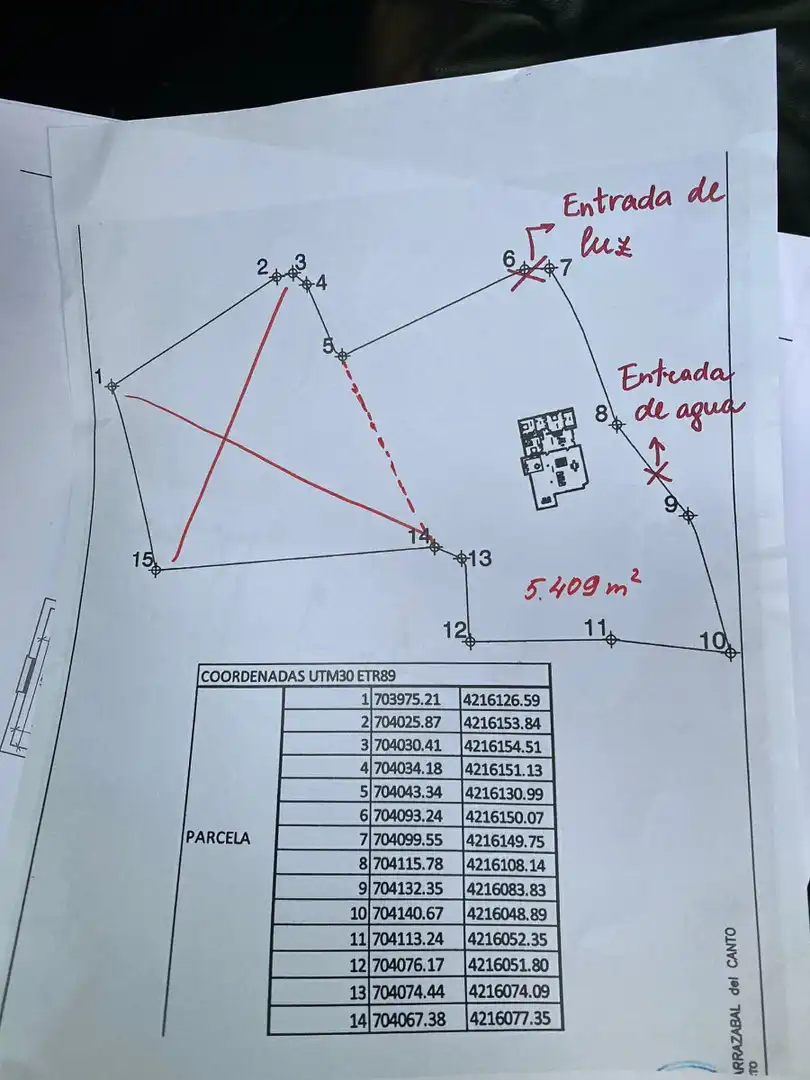 Entrada de
luz
2
3
4
6
7
5
1
Entrada
de agua
8
9
14
13
15
5.409 m²
12
11
10
COORDENADAS UTM30 ETR89
PARCELA
1 703975.21 4216126.59
2 704025.87 4216153.84
3 704030.41 4216154.51
4 704034.18 4216151.13
5 704043.34 4216130.99
6 704093.24 4216150.07
7 704099.55 4216149.75
8 704115.78 4216108.14
9 704132.35 4216083.83
10 704140.67 4216048.89
11 704113.24 4216052.35
12 704076.17 4216051.80
13 704074.44 4216074.09
14 704067.38 4216077.35
ARRAZABAL del CANTO
TO